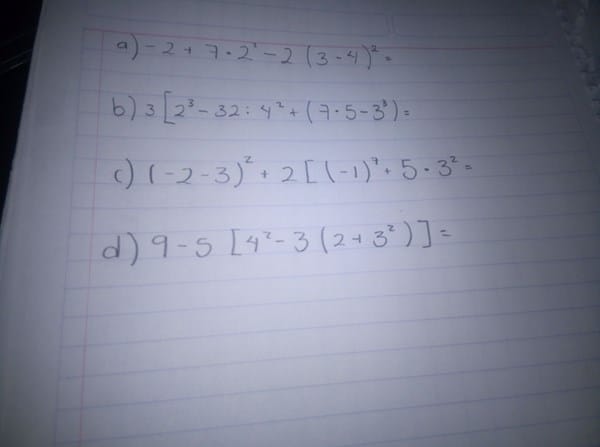 a) -2 + 7·2² - 2 (3-4)² =
b) 3 [2³ - 32 : 4² + (7·5-3³) =
c) (-2-3)² + 2 [(-1)⁷ + 5·3² =
d) 9-5 [4² - 3 (2+3²)] =